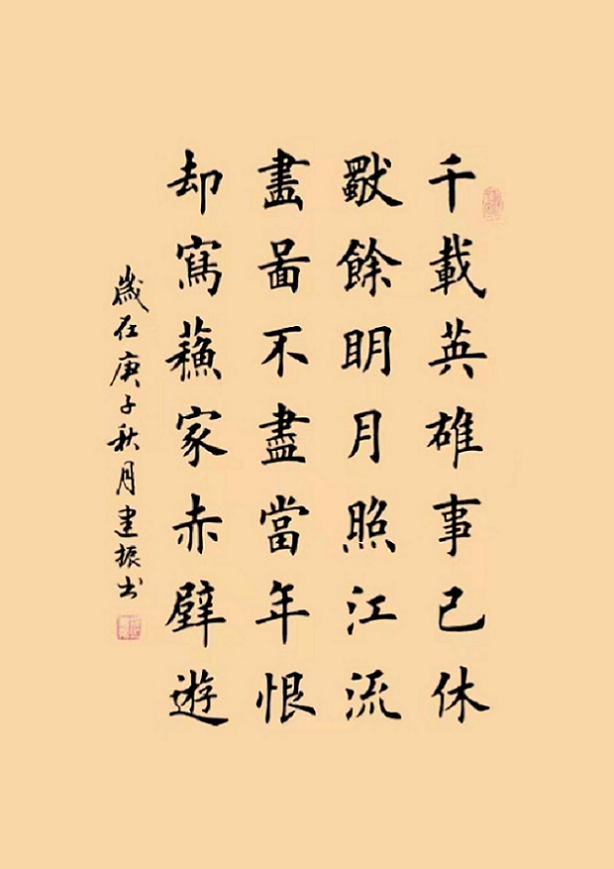 千載英雄事已休
獨餘眀月照江流
畫啚不盡當年恨
却寫蘓家赤壁遊
歲在庚子秋月建振书